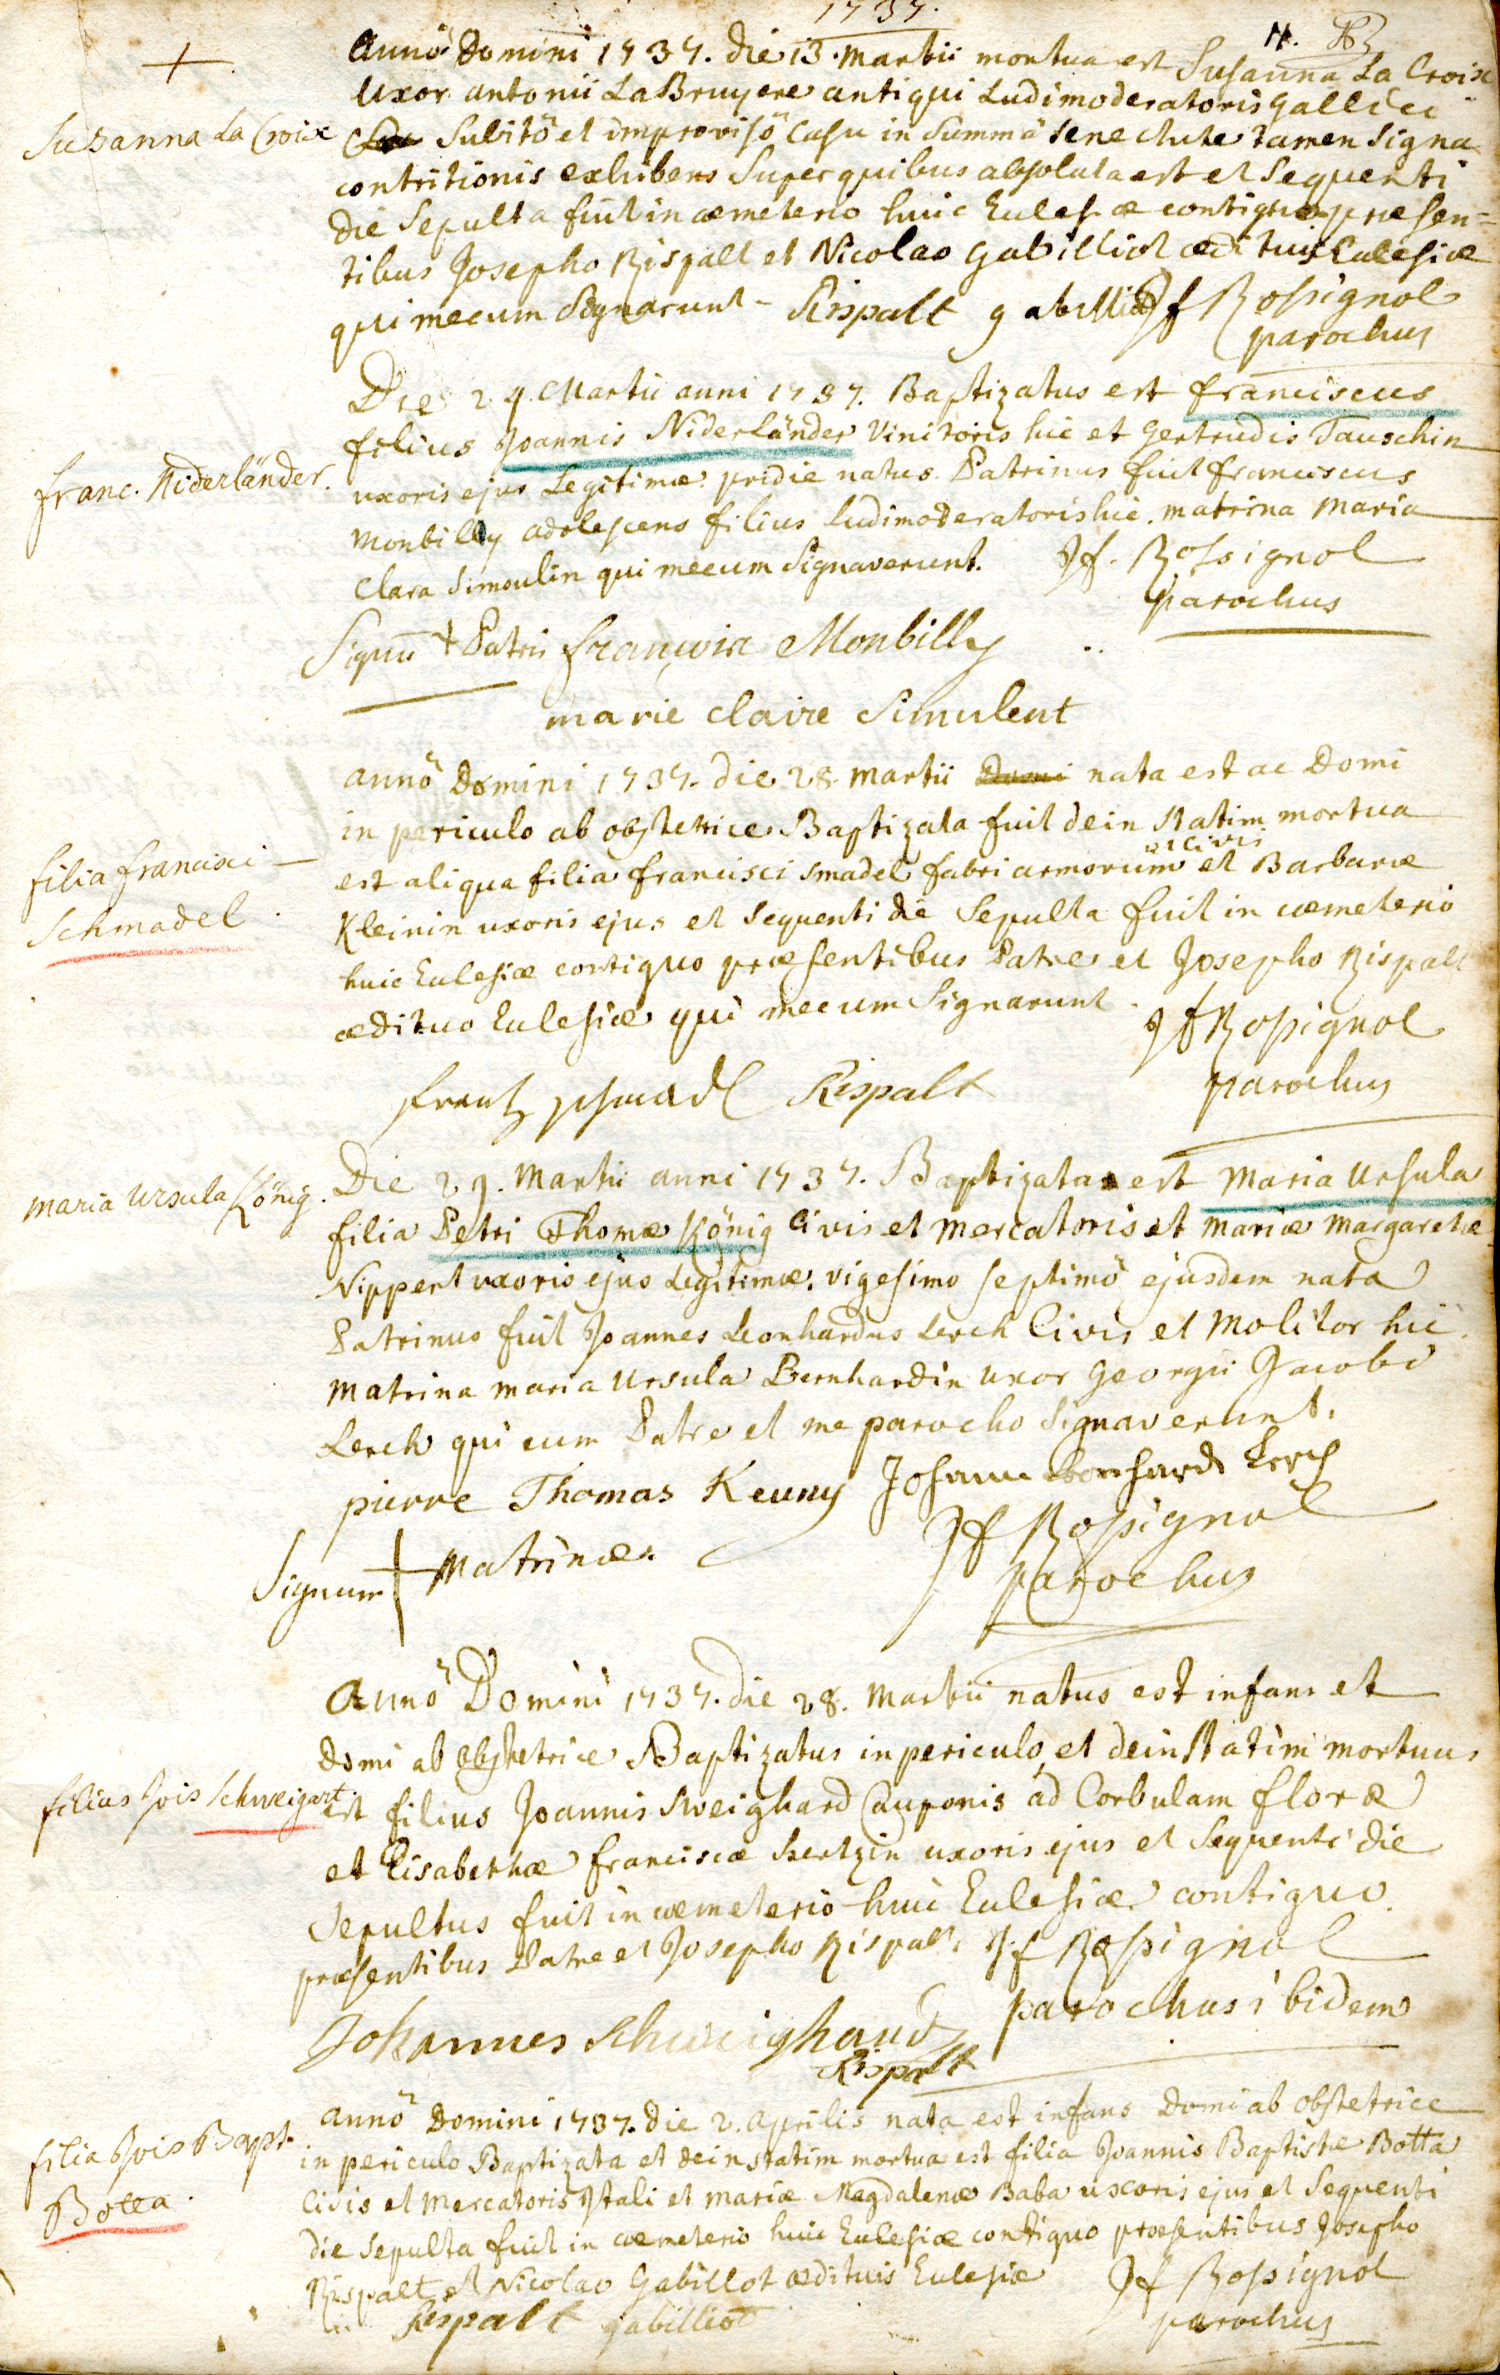 1737.
Annö Domini 1737. die 13. Martii mortua est Susanna La Croix
Uxor antonii La Bruyere antiqui Ludimoderatoris Gallici
Subitö et improvisö Casu in Summâ Senectute tamen Signa
contritionis exhibens Super quibus absoluta est et Sequenti
die Sepulta fuit in cœmeterio huic Eclesiæ contiguo præsen=
tibus Josepho Rispalt et Nicolao Gabilliot ædituis Eclesiæ
qui mecum Signarunt - Rispalt gabilliot Jf Rossignol
parochus
Suzanna La Croix
Die 29. Martii anni 1737. Baptizatus est franciscus
filius Joannis Niderländer Vinitoris hic et Gertrudis Tauschin
uxoris ejus Legitimæ. pridie natus. Patrinus fuit franciscus
Monbilly adolescens filius Ludimoderatoris hic. matrina Maria
Clara Simoulin qui mecum Signaverunt. Jf. Rossignol
parochus
franc. Niderländer.
Signũ + Patris françois Monbilly
marie claire Simulent
annö Domini 1737. die 28. Martii nata est ac Domi
in periculo ab obstetrice Baptizata fuit dein Statim mortua
est aliqua filia francisci Smadel fabri armorum et Civis et Barbaræ
Kleinin uxoris ejus et Sequenti die Sepulta fuit in cœmeterio
huic Eclesiæ contiguo præsentibus Patre et Josepho Rispalt
ædituo Eclesiæ qui mecum Signarunt. Jf Rossignol
parochus
filia francisci
Schmadel
frantz schmadl Rispalt
Die 29. Martii anni 1737. Baptizata est Maria Ursula
filia Petri Thomæ König Civis et Mercatoris et Mariæ Margarethæ
Nippert uxoris ejus Legitimæ. vigesimo septimö ejusdem nata
Patrinus fuit Joannes Leonhardus Lerch Civis et Molitor hic.
Matrina maria Ursula Bernhardin uxor Georgii Jacobi
Lerch qui cum Patre et me parocho Signaverunt.
maria Ursula König.
pierre Thomas Keuny Johann Leonhard Lerch
Jf Rossignol
Signum + Matrinæ.
parochus
Annö Domini 1737. die 28. Martii natus est infans et
domi ab obstetrice Baptizatus in periculo, et dein Statim mortuus
est filius Joannis Sweighard Cauponis ad Corbulam floræ
et Elisabethæ franciscæ Hertzin uxoris ejus et Sequenti die
Sepultus fuit in cœmeterio huic Eclesiæ contiguo.
præsentibus Patre et Josepho Rispalt. Jf Rossignol
parochus ibidem
filius Jois Schweigart.
Johannes Schweighard
Rispalt
annö Domini 1737. die 2. Aprilis nata est infans Domi ab obstetrice
in periculo Baptizata et dein statim mortua est filia Joannis Baptistæ Botta
Civis et Mercatoris Itali et mariæ Magdalenæ Baba uxoris ejus et Sequenti
die Sepulta fuit in cœmeterio huic Eclesiæ contiguo præsentibus Josepho
Rispalt et Nicolao Gabillot ædituis Eclesiæ Jf Rossignol
parochus
filia Jois Bapt.
Botta.
Rispalt gabilliot